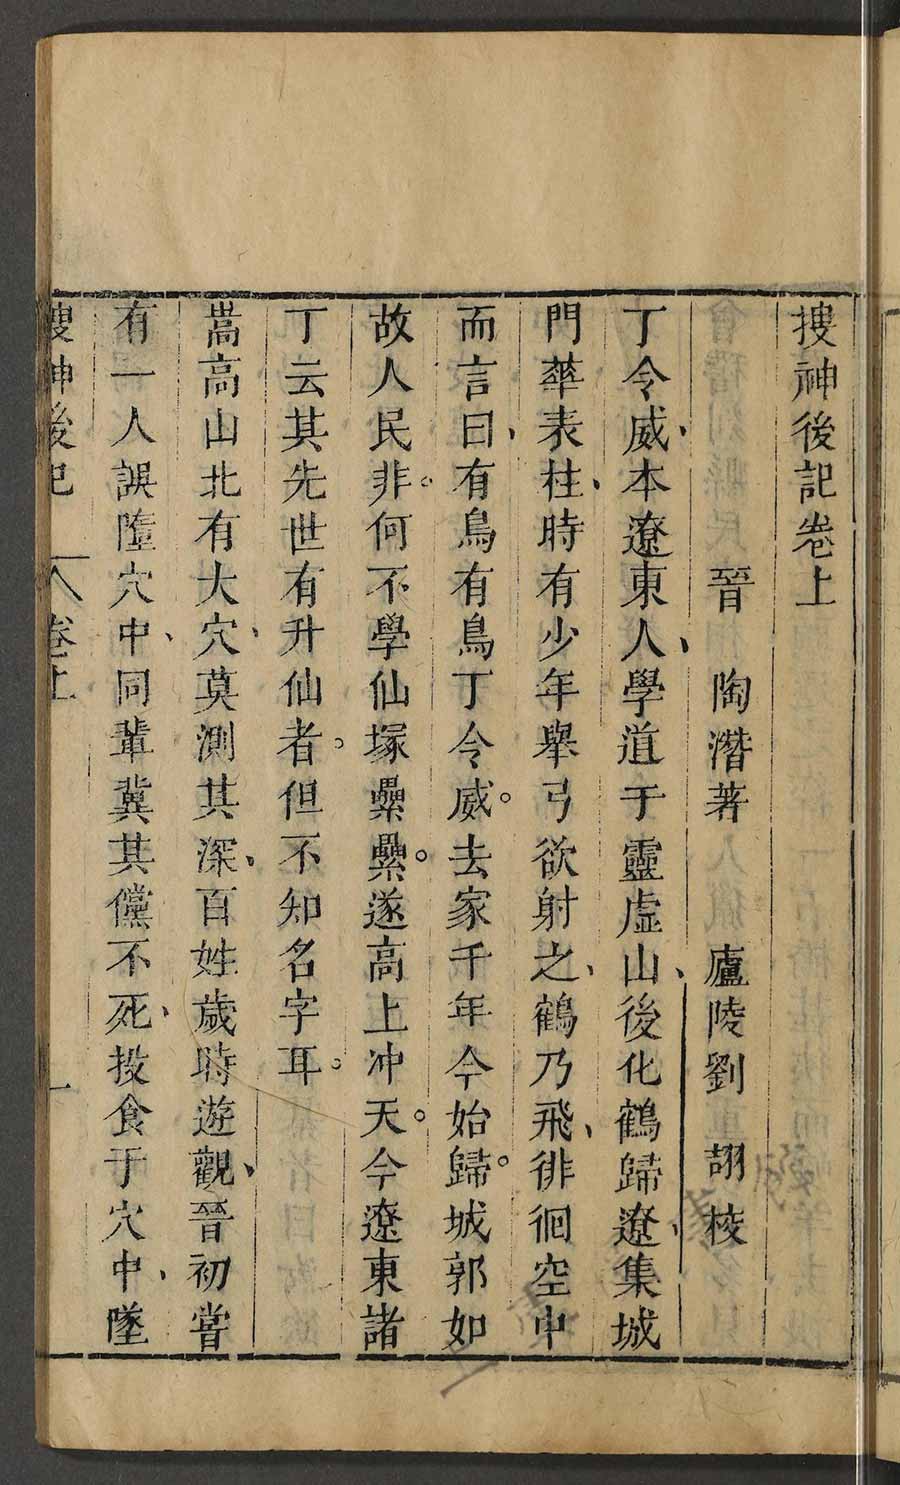 搜神後記卷上
晉　陶潛著　廬陵劉　詡校
丁令威、本遼東人、學道于靈虛山、後化鶴歸遼、集城
門華表柱、時有少年舉弓欲射之、鶴乃飛、徘徊空中
而言曰、有鳥有鳥丁令威。去家千年今始歸。城郭如
故人民非。何不學仙塚纍纍。遂高上冲天。今遼東諸
丁云其先世有升仙者。但不知名字耳。
嵩高山北有大穴、莫測其深、百姓歲時遊觀、晉初嘗
有一人誤墮穴中、同輩冀其儻不死、投食于穴中、墜
搜神後記　卷上　一